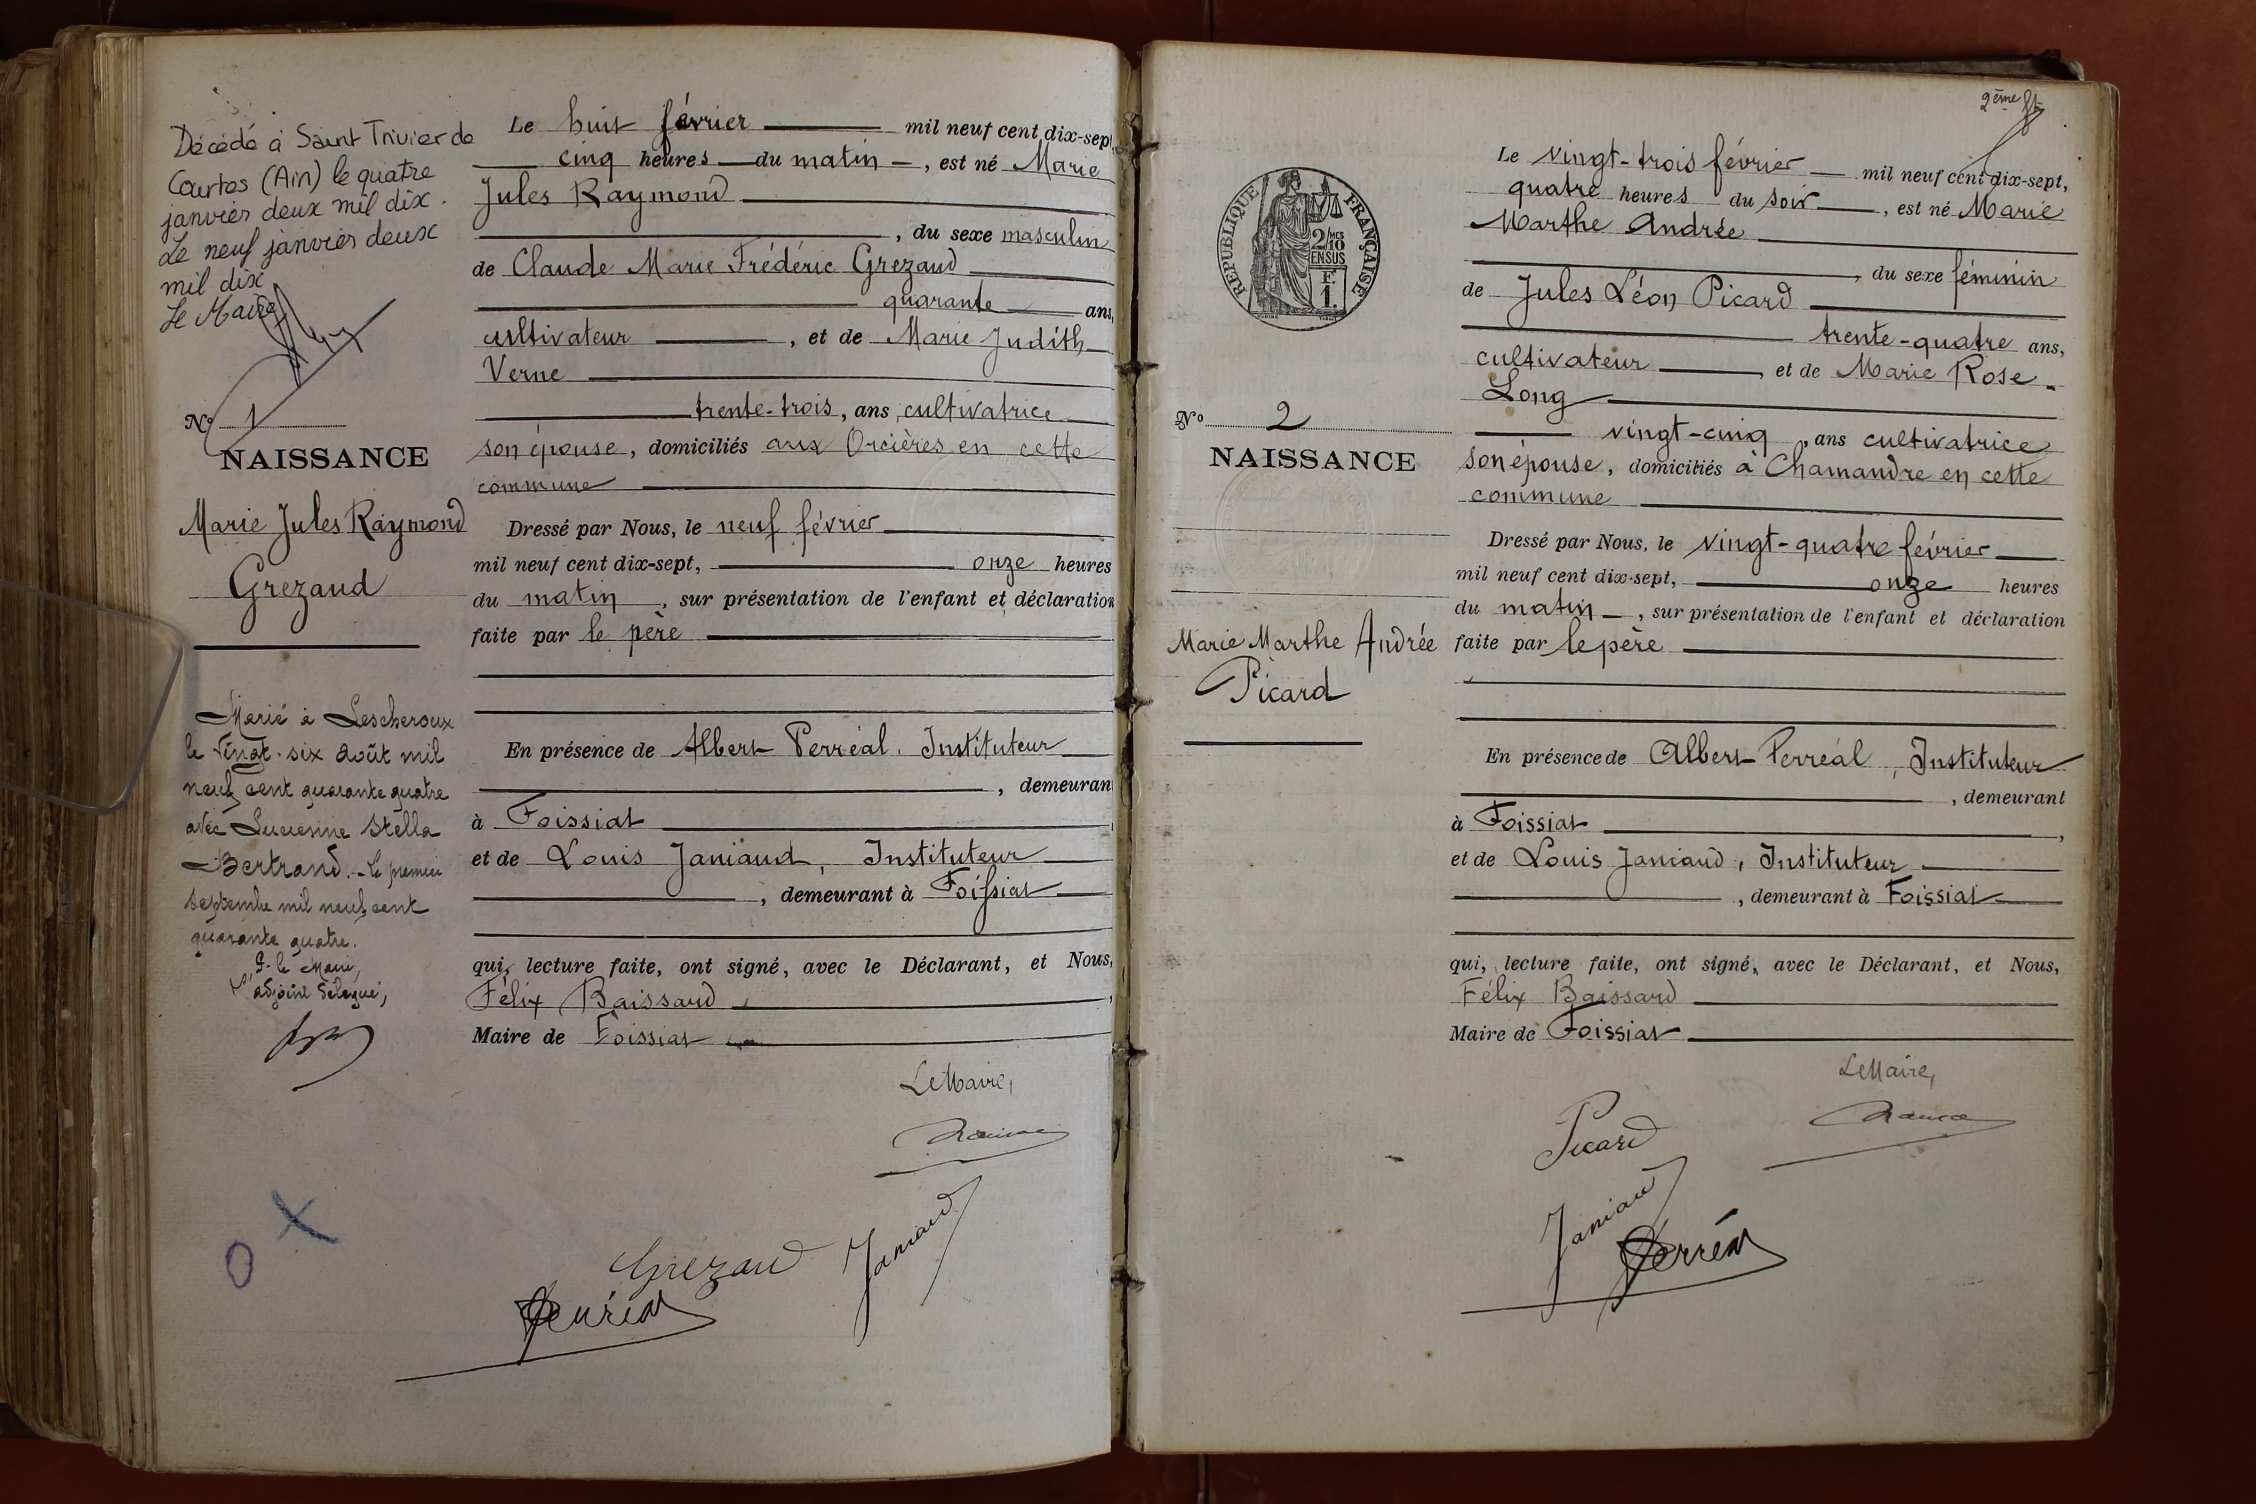 Décédé à Saint Trivier de
Courtes (Ain) le quatre
janvier deux mil dix.
Le neuf janvier deux
mil dix
Le Maire,
N° 1
NAISSANCE
Marie Jules Raymond
Grezaud
Marié à Lescheroux
le Vingt-six août mil
neuf cent quarante quatre
avec Lucienne Stella
Bertrand. Le premier
septembre mil neuf cent
quarante quatre.
P. le Maire,
L'adjoint délégué,
Le huit février mil neuf cent dix-sept,
cinq heures du matin, est né Marie
Jules Raymond
, du sexe masculin
de Claude Marie Frédéric Grezaud
quarante ans,
cultivateur, et de Marie Judith
Verne
trente-trois, ans, cultivatrice
son épouse, domiciliés aux Orcières en cette
commune
Dressé par Nous, le neuf février
mil neuf cent dix-sept, onze heures
du matin, sur présentation de l'enfant et déclaration
faite par le père
En présence de Albert Perréal, Instituteur
, demeurant
à Foissiat
et de Louis Janiaud, Instituteur
, demeurant à Foissiat
qui, lecture faite, ont signé, avec le Déclarant, et Nous,
Félix Baissard,
Maire de Foissiat
Le Maire,
Grézaud
Janiaud
Perréal
2ème ft
RÉPUBLIQUE FRANÇAISE
2/10
EN SUS
Fr
1.
N° 2
NAISSANCE
Marie Marthe Andrée
Picard
Le vingt-trois février mil neuf cent dix-sept,
quatre heures du soir, est né Marie
Marthe Andrée
, du sexe féminin
de Jules Léon Picard
trente-quatre ans,
cultivateur, et de Marie Rose
Long
vingt-cinq, ans cultivatrice
son épouse, domiciliés à Chamandre en cette
commune
Dressé par Nous, le vingt-quatre février
mil neuf cent dix-sept, onze heures
du matin, sur présentation de l'enfant et déclaration
faite par le père
En présence de Albert Perréal, Instituteur
, demeurant
à Foissiat,
et de Louis Janiaud, Instituteur
, demeurant à Foissiat
qui, lecture faite, ont signé, avec le Déclarant, et Nous,
Félix Baissard
Maire de Foissiat
Le Maire,
Picard
Janiaud
Perréal